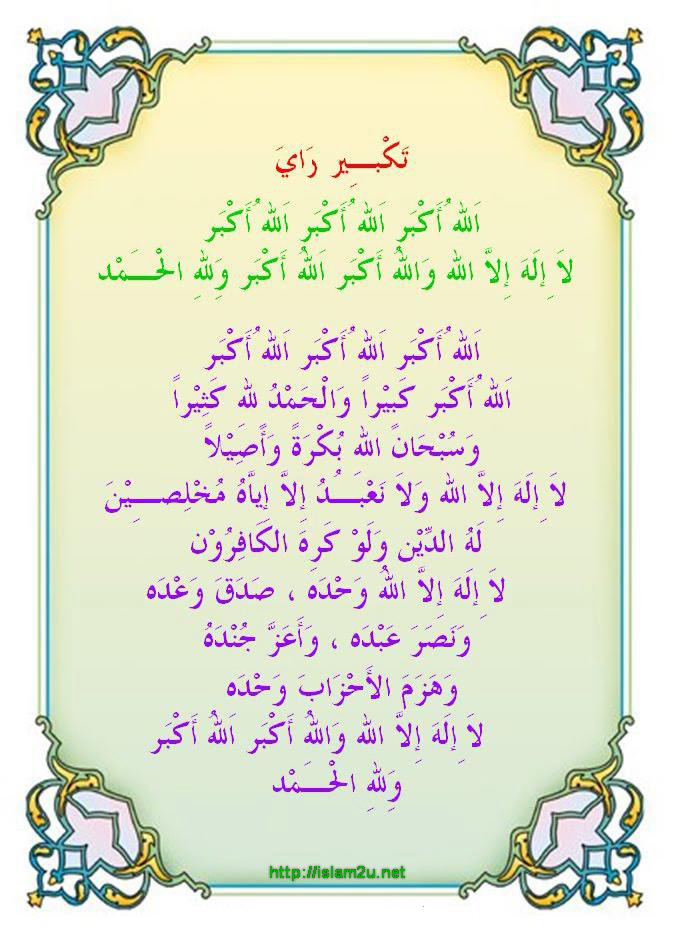 تَكْبِـــيِر رَايَ
اَللهُ أَكْبَر اَللهُ أَكْبَر اَللهُ أَكْبَر
لاَ إِلَهَ إِلاَّ الله وَاللهُ أَكْبَر اَللهُ أَكْبَر وَِللهِ الْحَـــمْد
اَللهُ أَكْبَر اَللهُ أَكْبَر اَللهُ أَكْبَر
اَللهُ أَكْبَر كَبِيْراً وَالْحَمْدُ لله كَثِيْراً
وَسُبْحَانً الله بُكْرَةً وَأَصِيْلاً
لاَ إِلَهَ إِلاَّ الله وَلاَ نَعْبَـــدُ إِلاَّ إِياَّهُ مُخْلِصـــِيْنَ
لَهُ الدِّيْن وَلَوْ كَرِهَ الكَافِرُوْن
لاَ إِلَهَ إِلاَّ اللهُ وَحْدَه ، صَدَقَ وَعْدَه
وَنَصَرَ عَبْدَه ، وَأَعَزَّ جُنْدَهُ
وَهَزَمَ الأَحْزَابَ وَحْدَه
لاَ إِلَهَ إِلاَّ الله وَاللهُ أَكْبَر اَللهُ أَكْبَر
وَِللهِ الْحَـــمْد
http://islam2u.net